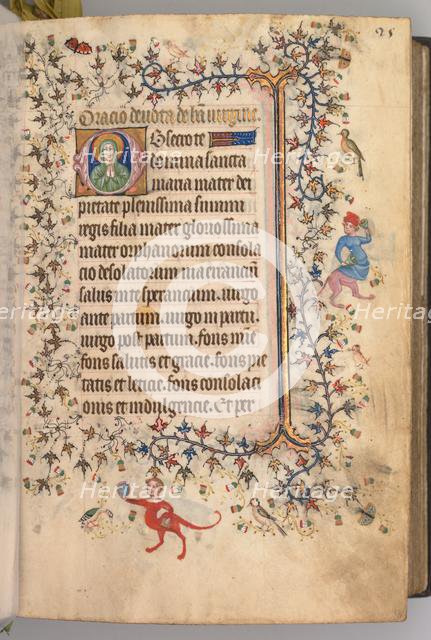 25
Oracio devota de bā virgine.
Obsecro te
domina sancta
maria mater dei
pietate plenissima summi
regis filia mater gloriosissima
mater orphanorum consola
cio desolatorum via errancium
salus in te sperancium. virgo
ante partum. virgo in partu.
virgo post partum. fons mīe
fons salutis et gracie. fons pie
tatis et leticie. fons consolaci
onis et indulgencie. Et per
Heritage Images